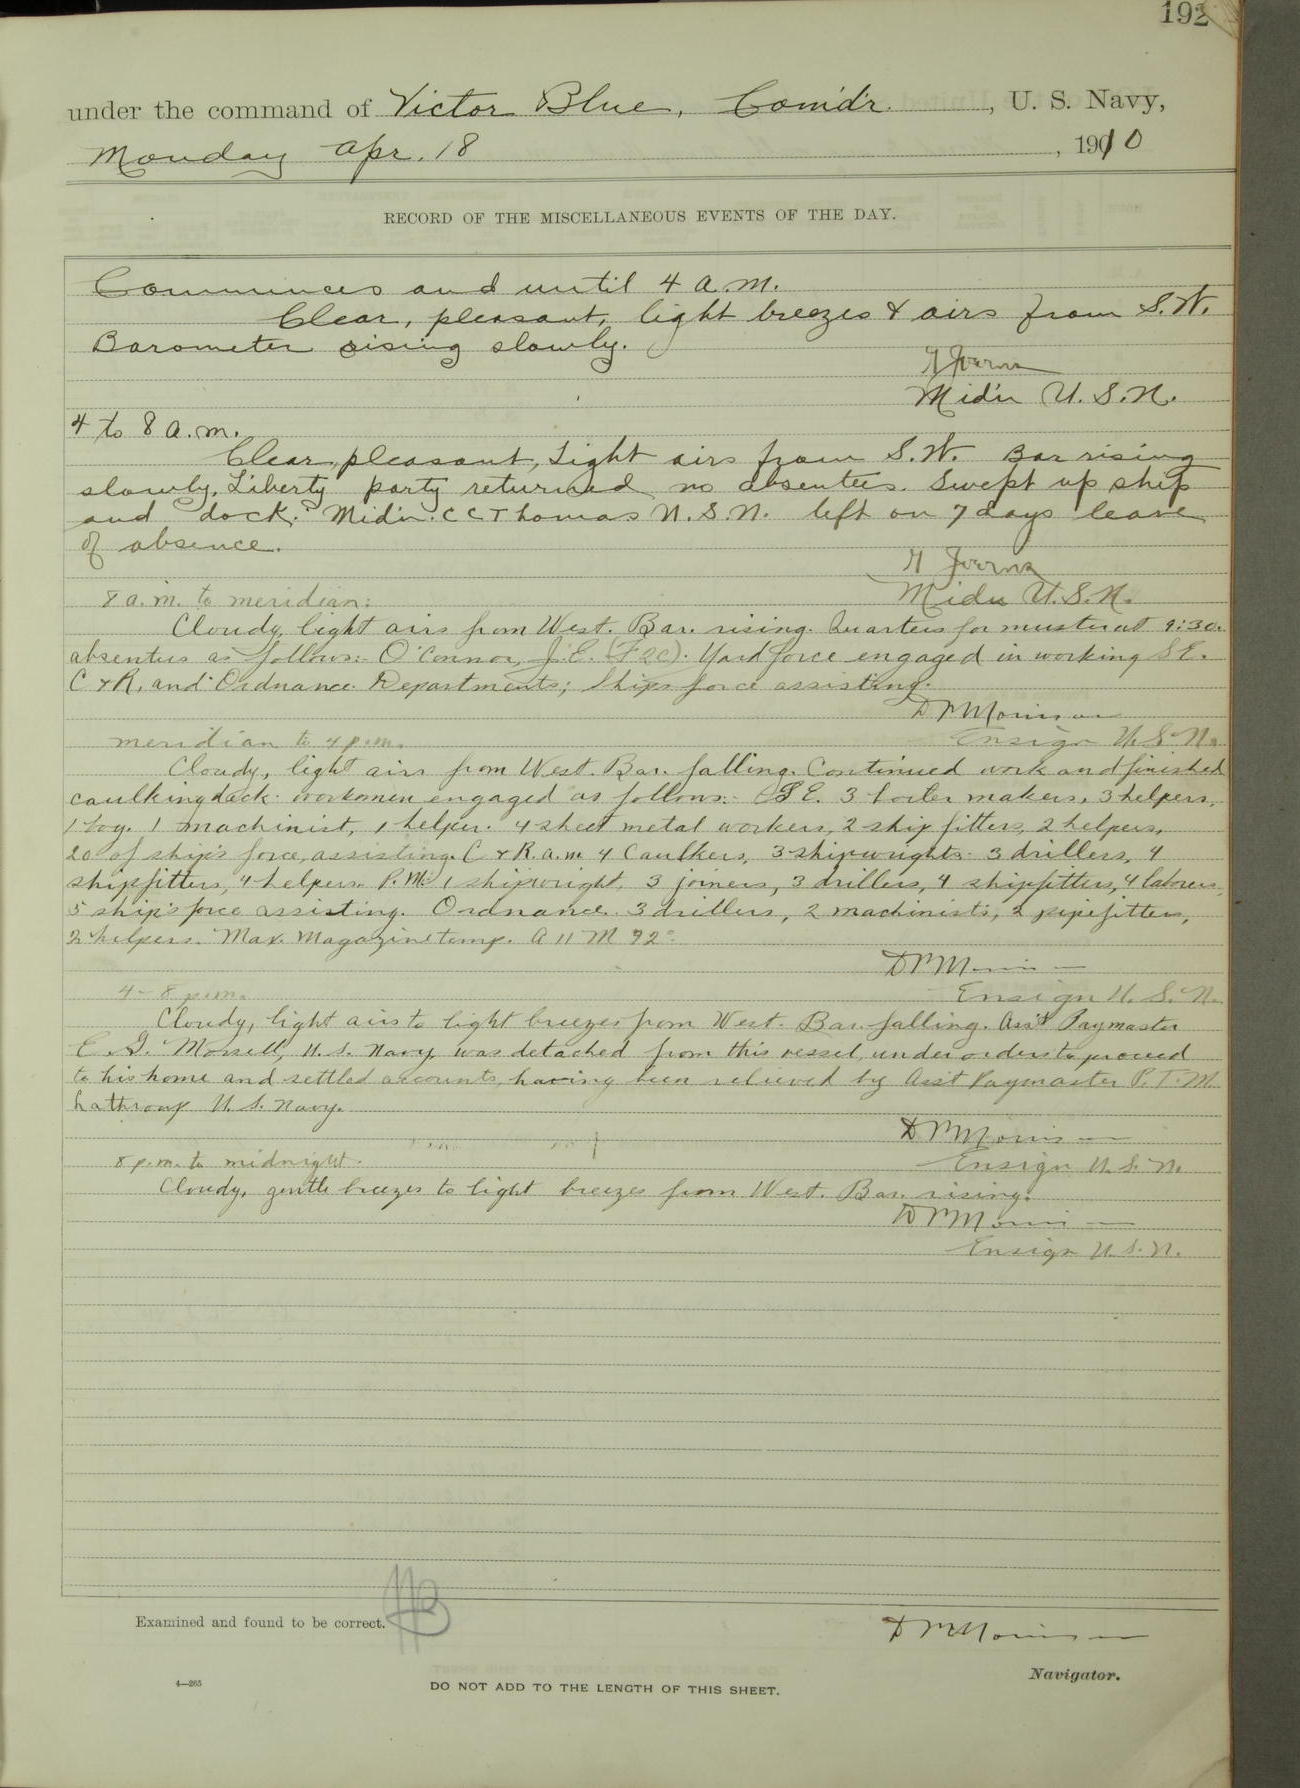 192
under the command of Victor Blue, Comd'r. , U. S. Navy,
Monday Apr. 18 , 1910
RECORD OF THE MISCELLANEOUS EVENTS OF THE DAY.
Commences and until 4 a.m.
Clear, pleasant, light breezes & airs from S.W.
Barometer rising slowly.
Mid'n U.S.N.
4 to 8 a.m.
Clear, pleasant, Light airs from S.W. Bar rising
slowly. Liberty party returned no absentees Swept up ship
and dock. Mid'n. C C Thomas U.S.N. left on 7 days leave
of absence.
Midn U.S.N.
8 a.m. to meridian:
Cloudy, light airs from West. Bar. rising. Quarters for muster at 9:30.
absentees as follows:- O'Connor, J.E. (F2C). Yard force engaged in working S.E.
C & R. and Ordnance Departments; Ships force assisting.
D M Morrison
Ensign U.S.N.
meridian to 4 p.m.
Cloudy, light airs from West. Bar. falling. Continued work and finished
caulking deck. workmen engaged as follows:- S E. 3 boiler makers, 3 helpers,
1 boy. 1 machinist, 1 helper. 4 sheet metal workers, 2 ship fitters, 2 helpers,
20 of ship's force, assisting. C & R. a.m. 4 Caulkers, 3 shipwrights. 3 drillers, 4
shipfitters, 4 helpers. P.M. 1 shipwright, 3 joiners, 3 drillers, 4 shipfitters, 4 laborers,
5 ship's force assisting. Ordnance. 3 drillers, 2 machinists, 2 pipefitters,
2 helpers. Max. Magazine temp. A 11 M 92°
D M Morrison
Ensign U.S.N.
4 - 8 p.m.
Cloudy, light airs to light breezes from West. Bar. falling. Ass't Paymaster
E. G. Morsell, U. S. Navy was detached from this vessel, under orders to proceed
to his home and settled accounts, having been relieved by Ass't Paymaster P. T. M.
Lathrop U. S. Navy.
D M Morrison
Ensign U.S.N.
8 p.m. to midnight.
Cloudy, gentle breezes to light breezes from West. Bar. rising.
D M Morrison
Ensign U.S.N.
Examined and found to be correct.
D M Morrison
Navigator.
4—265
DO NOT ADD TO THE LENGTH OF THIS SHEET.